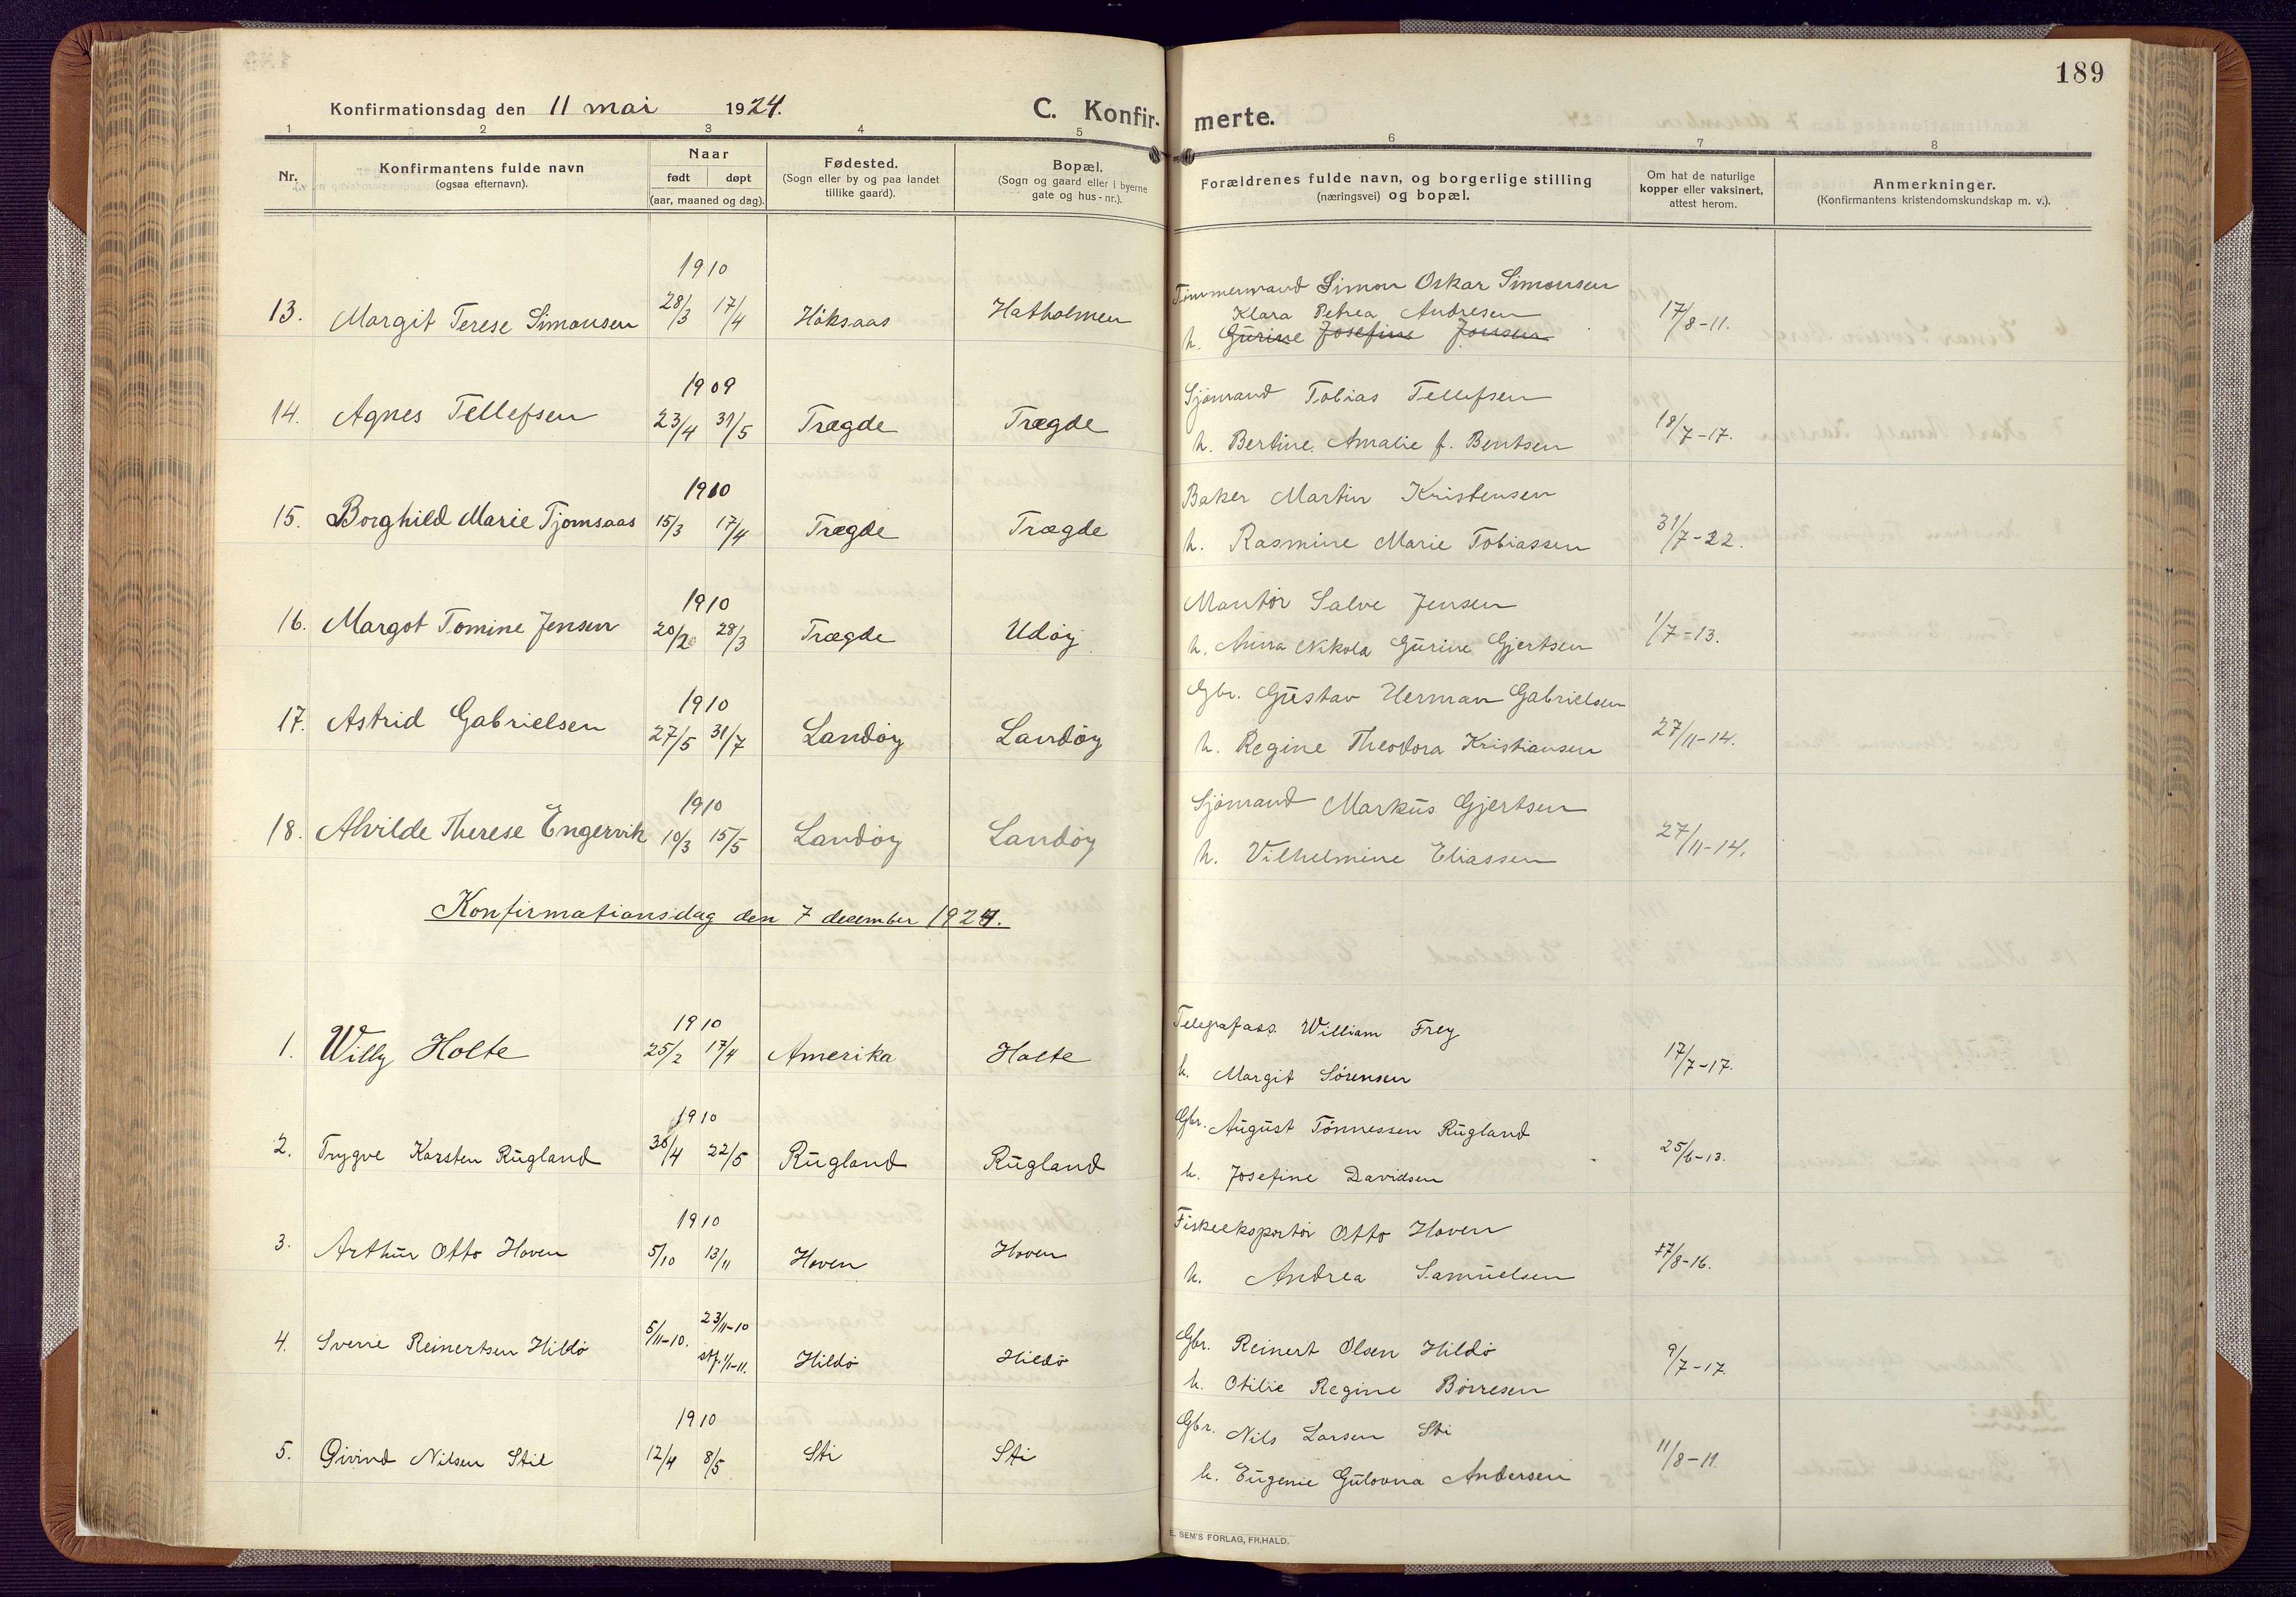 189
Konfirmationsdag den 11 mai 1924.
C. Konfir-
merte.
1 2 3 4 5 6 7 8
Nr.
Konfirmantens fulde navn
(ogsaa efternavn).
Naar
født døpt
(aar, maaned og dag).
Fødested.
(Sogn eller by og paa landet
tillike gaard).
Bopæl.
(Sogn og gaard eller i byerne
gate og hus-nr.).
Forældrenes fulde navn, og borgerlige stilling
(næringsvei) og bopæl.
Om hat de naturlige
kopper eller vaksinert,
attest herom.
Anmerkninger.
(Konfirmantens kristendomskundskap m. v.).
1910
Timmermand Simon Oskar Simonsen
Klara Petrea Andresen
13. Margit Terese Simonsen 28/3 17/4 Höksaas Hatholmen h. Gurine Josefine Jonsen 17/8-11.
1909
Sjömand Tobias Tellefsen
14. Agnes Tellefsen 23/4 31/5 Trægde Trægde h. Bertine Amalie f. Bentsen 18/7-17.
1910
Baker Martin Kristensen
15. Borghild Marie Tjomsaas 15/3 17/4 Trægde Trægde h. Rasmine Marie Tobiassen 31/7-22.
1910
Montör Salve Jensen
16. Margot Tomine Jensen 20/2 28/3 Trægde Udöy h. Anna Nikola Gurine Gjertsen 1/7-13.
1910
Gbr. Gustav Herman Gabrielsen
17. Astrid Gabrielsen 27/5 31/7 Landöy Landöy h. Regine Theodora Kristiansen 27/11-14.
1910
Sjömand Markus Gjertsen
18. Alvilde Therese Engervik 10/3 15/5 Landöy Landöy h. Vilhelmine Eliassen 27/11-14.
Konfirmationsdag den 7 december 1924.
1910
Telegrafass. William Frey
1. Willy Holte 25/2 17/4 Amerika Holte h. Margit Sörensen 17/7-17.
1910
Gbr. August Tönnessen Rugland
2. Trygve Karsten Rugland 30/4 22/5 Rugland Rugland h. Josefine Davidsen 25/6-13.
1910
Fiskeeksportör Otto Hoven
3. Arthur Otto Hoven 5/10 13/11 Hoven Hoven h. Andrea Samuelsen 17/8-16.
23/11-10
Gbr. Reinert Olsen Hildö
4. Sverre Reinertsen Hildö 5/11-10. stf. 1/1-11. Hildö Hildö h. Otilie Regine Börresen 9/7-17.
1910
Gbr. Nils Larsen Sti
5. Öivind Nilsen Sti 12/4 8/5 Sti Sti h. Eugenie Gulovna Andersen 11/8-11.
E. SEM'S FORLAG, FR.HALD.